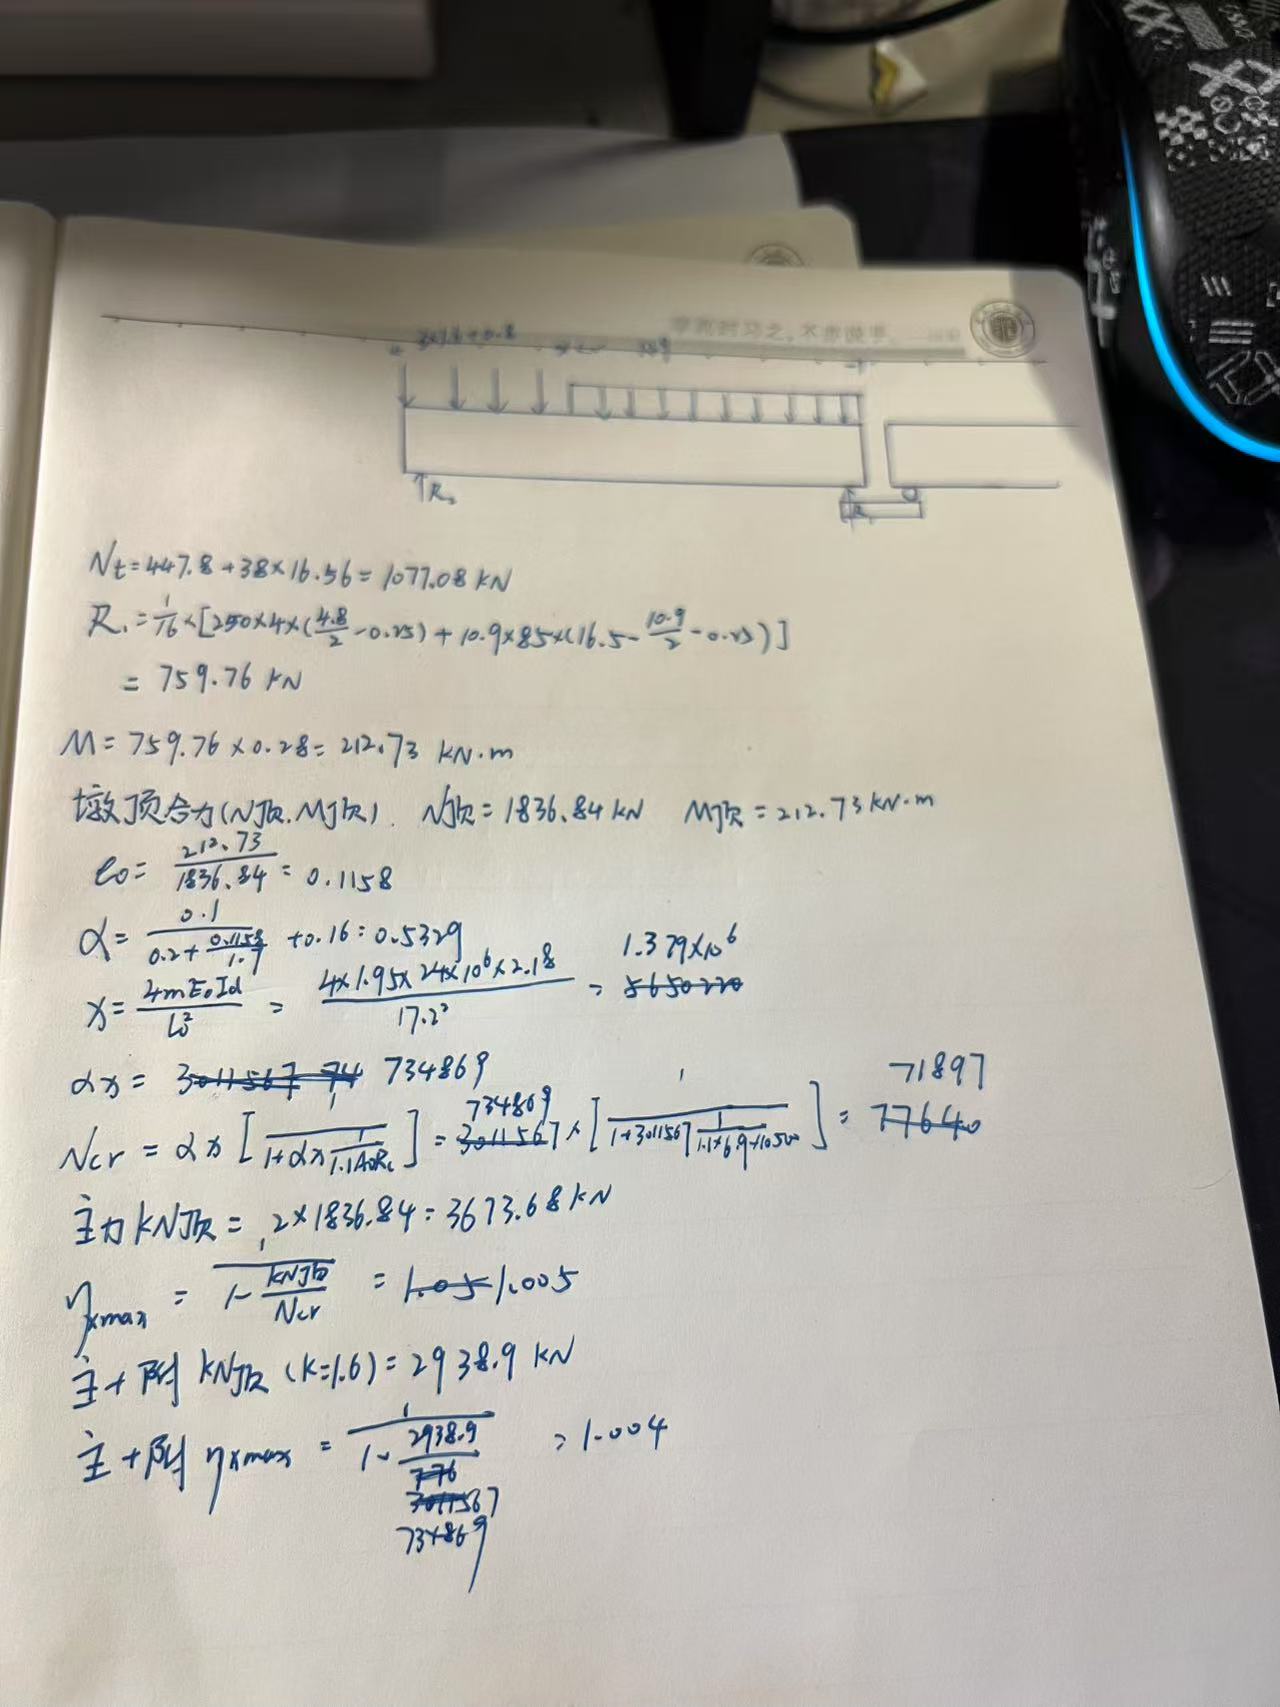 3×1.6+0.8
R₂
Nt=447.8+38×16.56=1077.08 KN
R₁=1/16×[250×4×(4.8/2-0.25)+10.9×85×(16.5-10.9/2-0.25)]
= 759.76 KN
M=759.76×0.28=212.73 KN·m
墩顶合力(N顶.M顶). N顶=1836.84KN M顶=212.73KN·m
e0=212.73/1836.84=0.1158
α=0.1/(0.2+0.1158/1.9)+0.16=0.5329
x=4mE₀Id/l0²=4×1.95×24×10⁶×2.18/17.2²=1.379×10⁶ 5650220
αx=3011567 74 734869
Ncr=αx[1/(1+αx 1/1.1A0Rc)]=734869 3011567×[1/(1+3011567 1/1.1×6.9×10500)]=71897 77640
主力KN顶=2×1836.84=3673.68KN
ηxmax=1/(1-KN顶/Ncr)=1.05 1.005
主+附 KN顶(K=1.6)=2938.9 KN
主+附 ηxmax=1/(1-2938.9/776 3011567 734869)=1.004